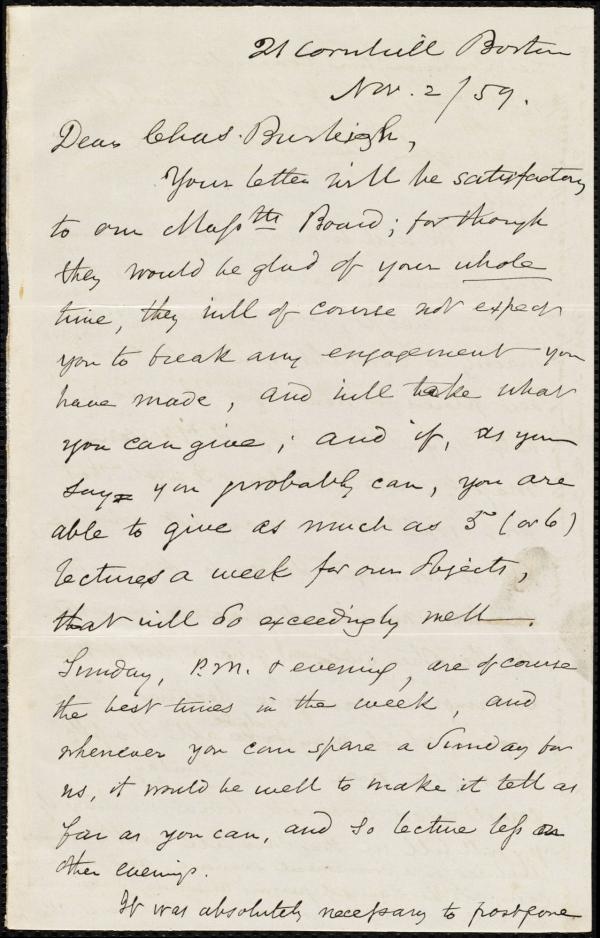 21 Cornhill Boston
Nov. 2/59.
Dear Chas. Burleigh,
Your letter will be satisfactory
to our Massts Board; for though
they would be glad of your whole
time, they will of course not expect
you to break any engagement you
have made, and will take what
you can give; and if, as you
say, you probably can, you are
able to give as much as 5 (or 6)
lectures a week for our objects,
that will do exceedingly well.
Sunday, P.M. & evening, are of course
the best times in the week, and
whenever you can spare a Sunday for
us, it would be well to make it tell as
far as you can, and so lecture less on
other evenings.
It was absolutely necessary to postpone